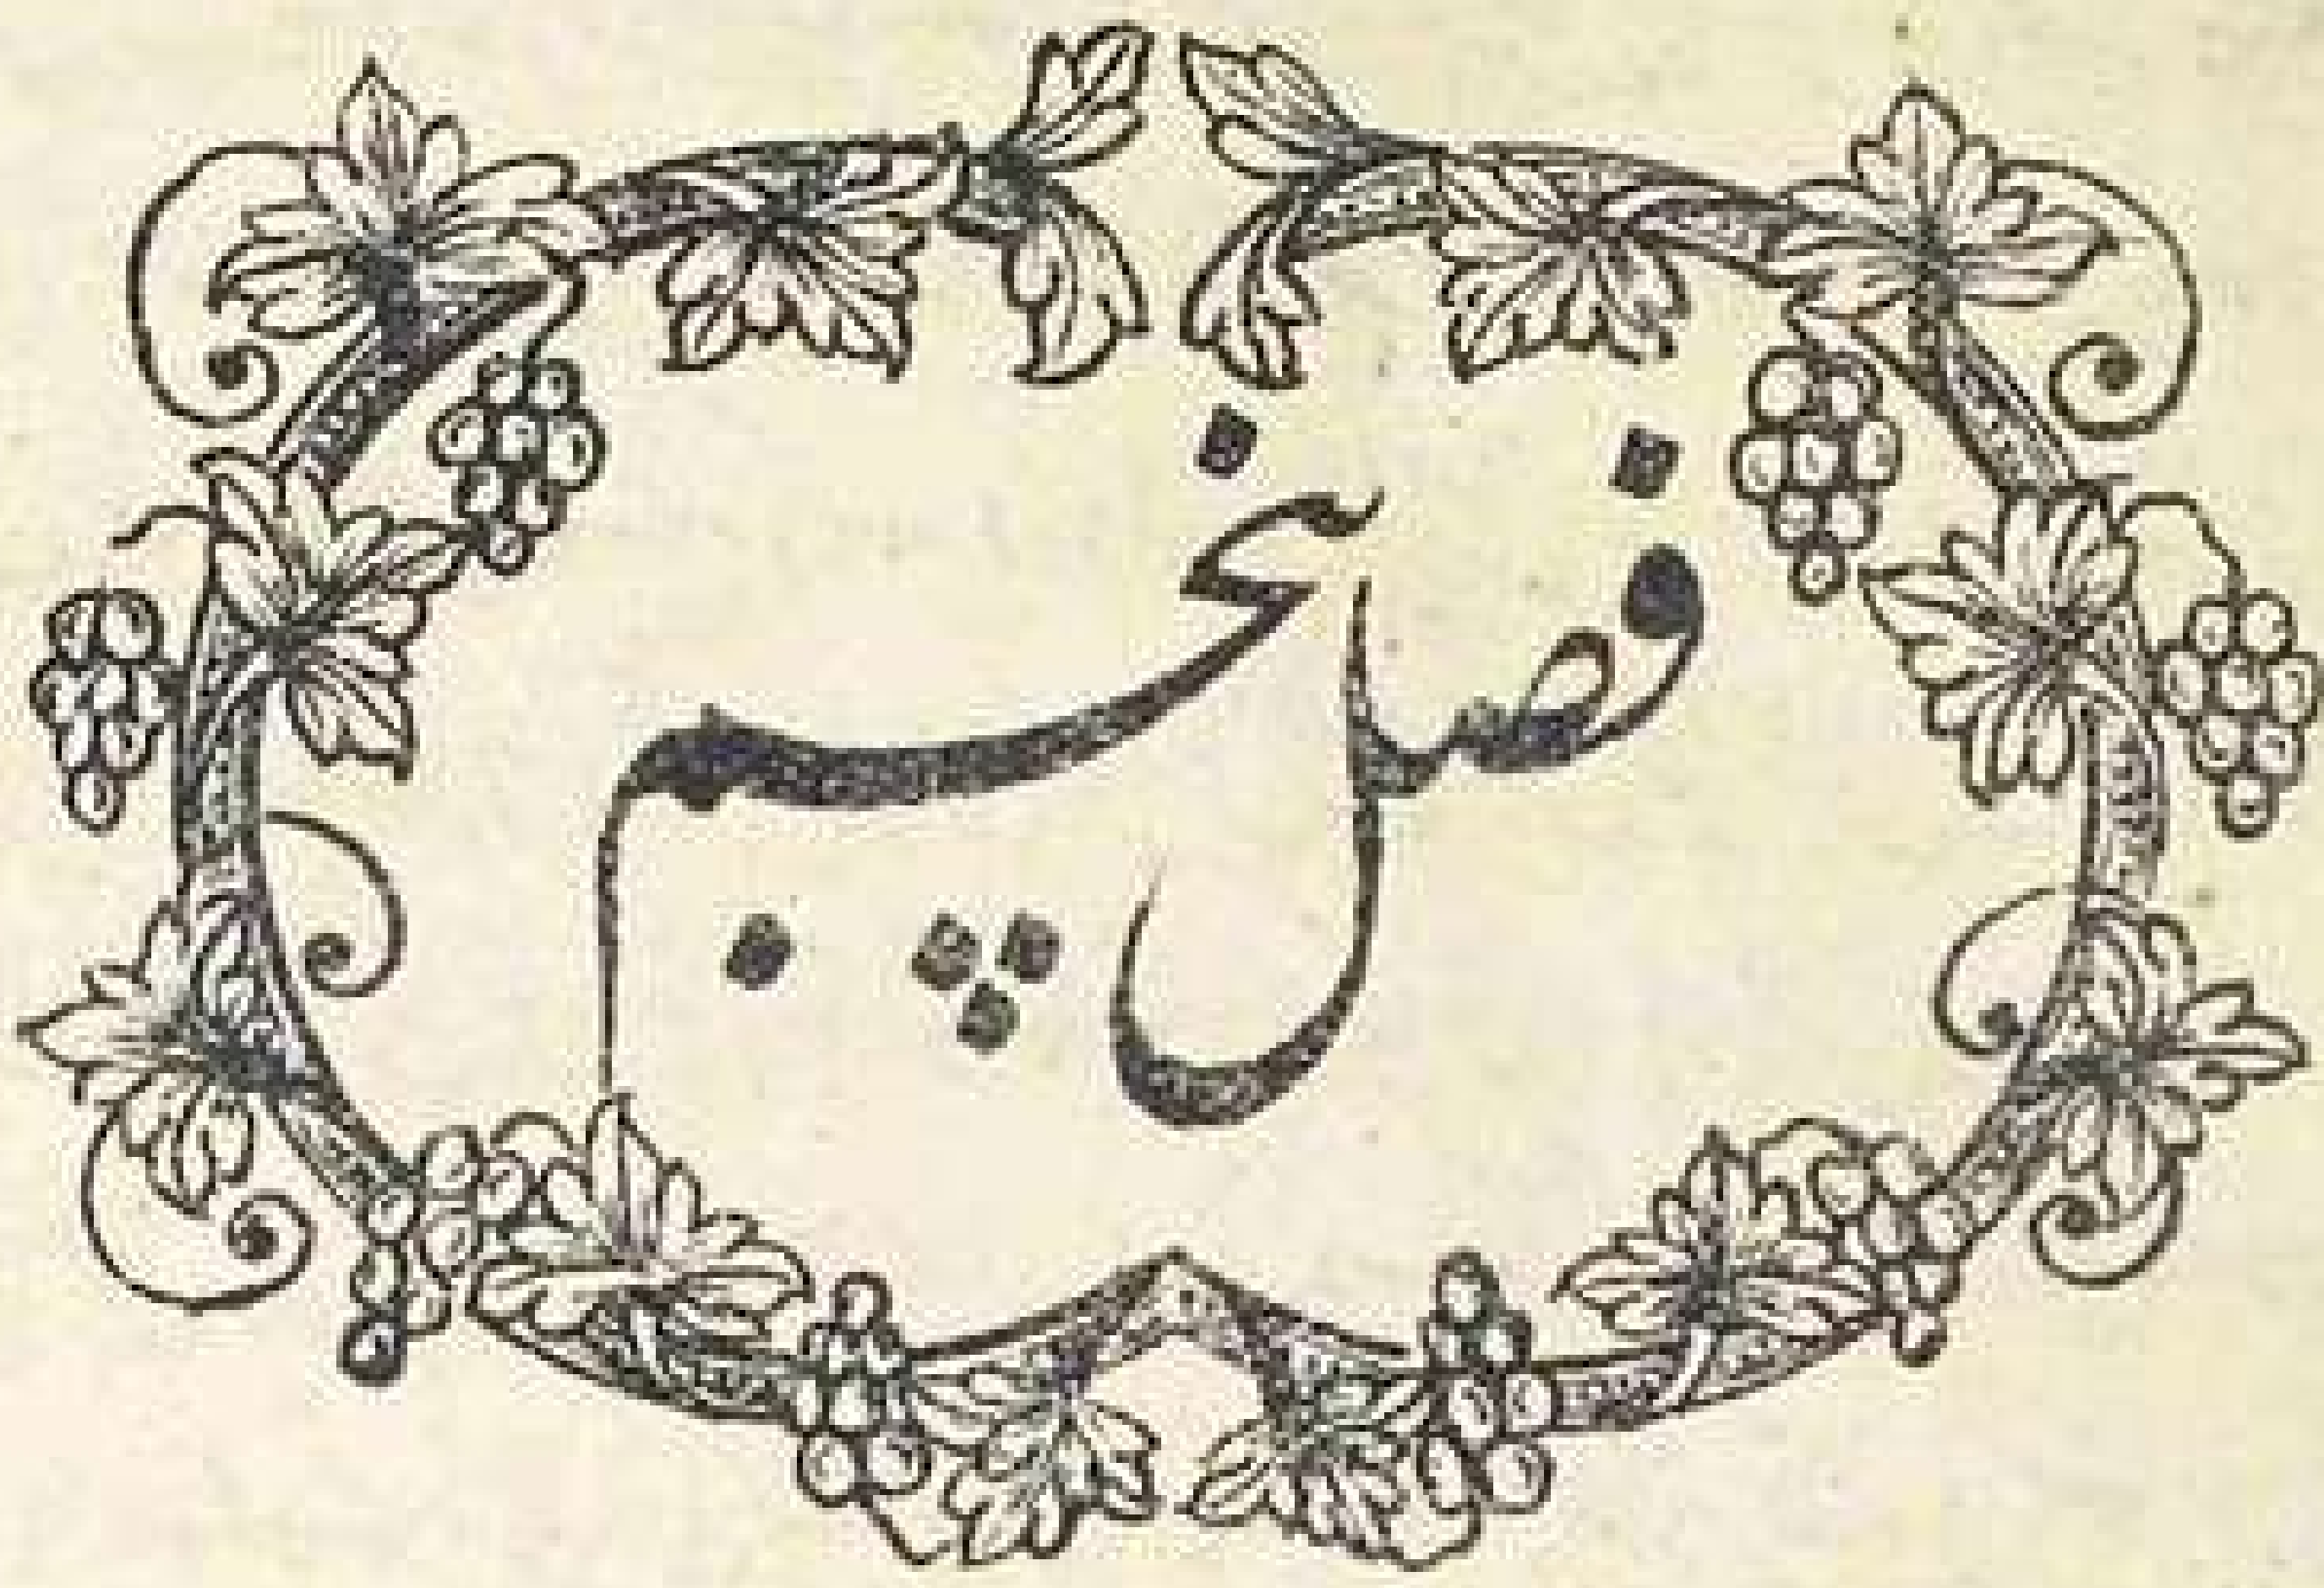 فصل پنجم